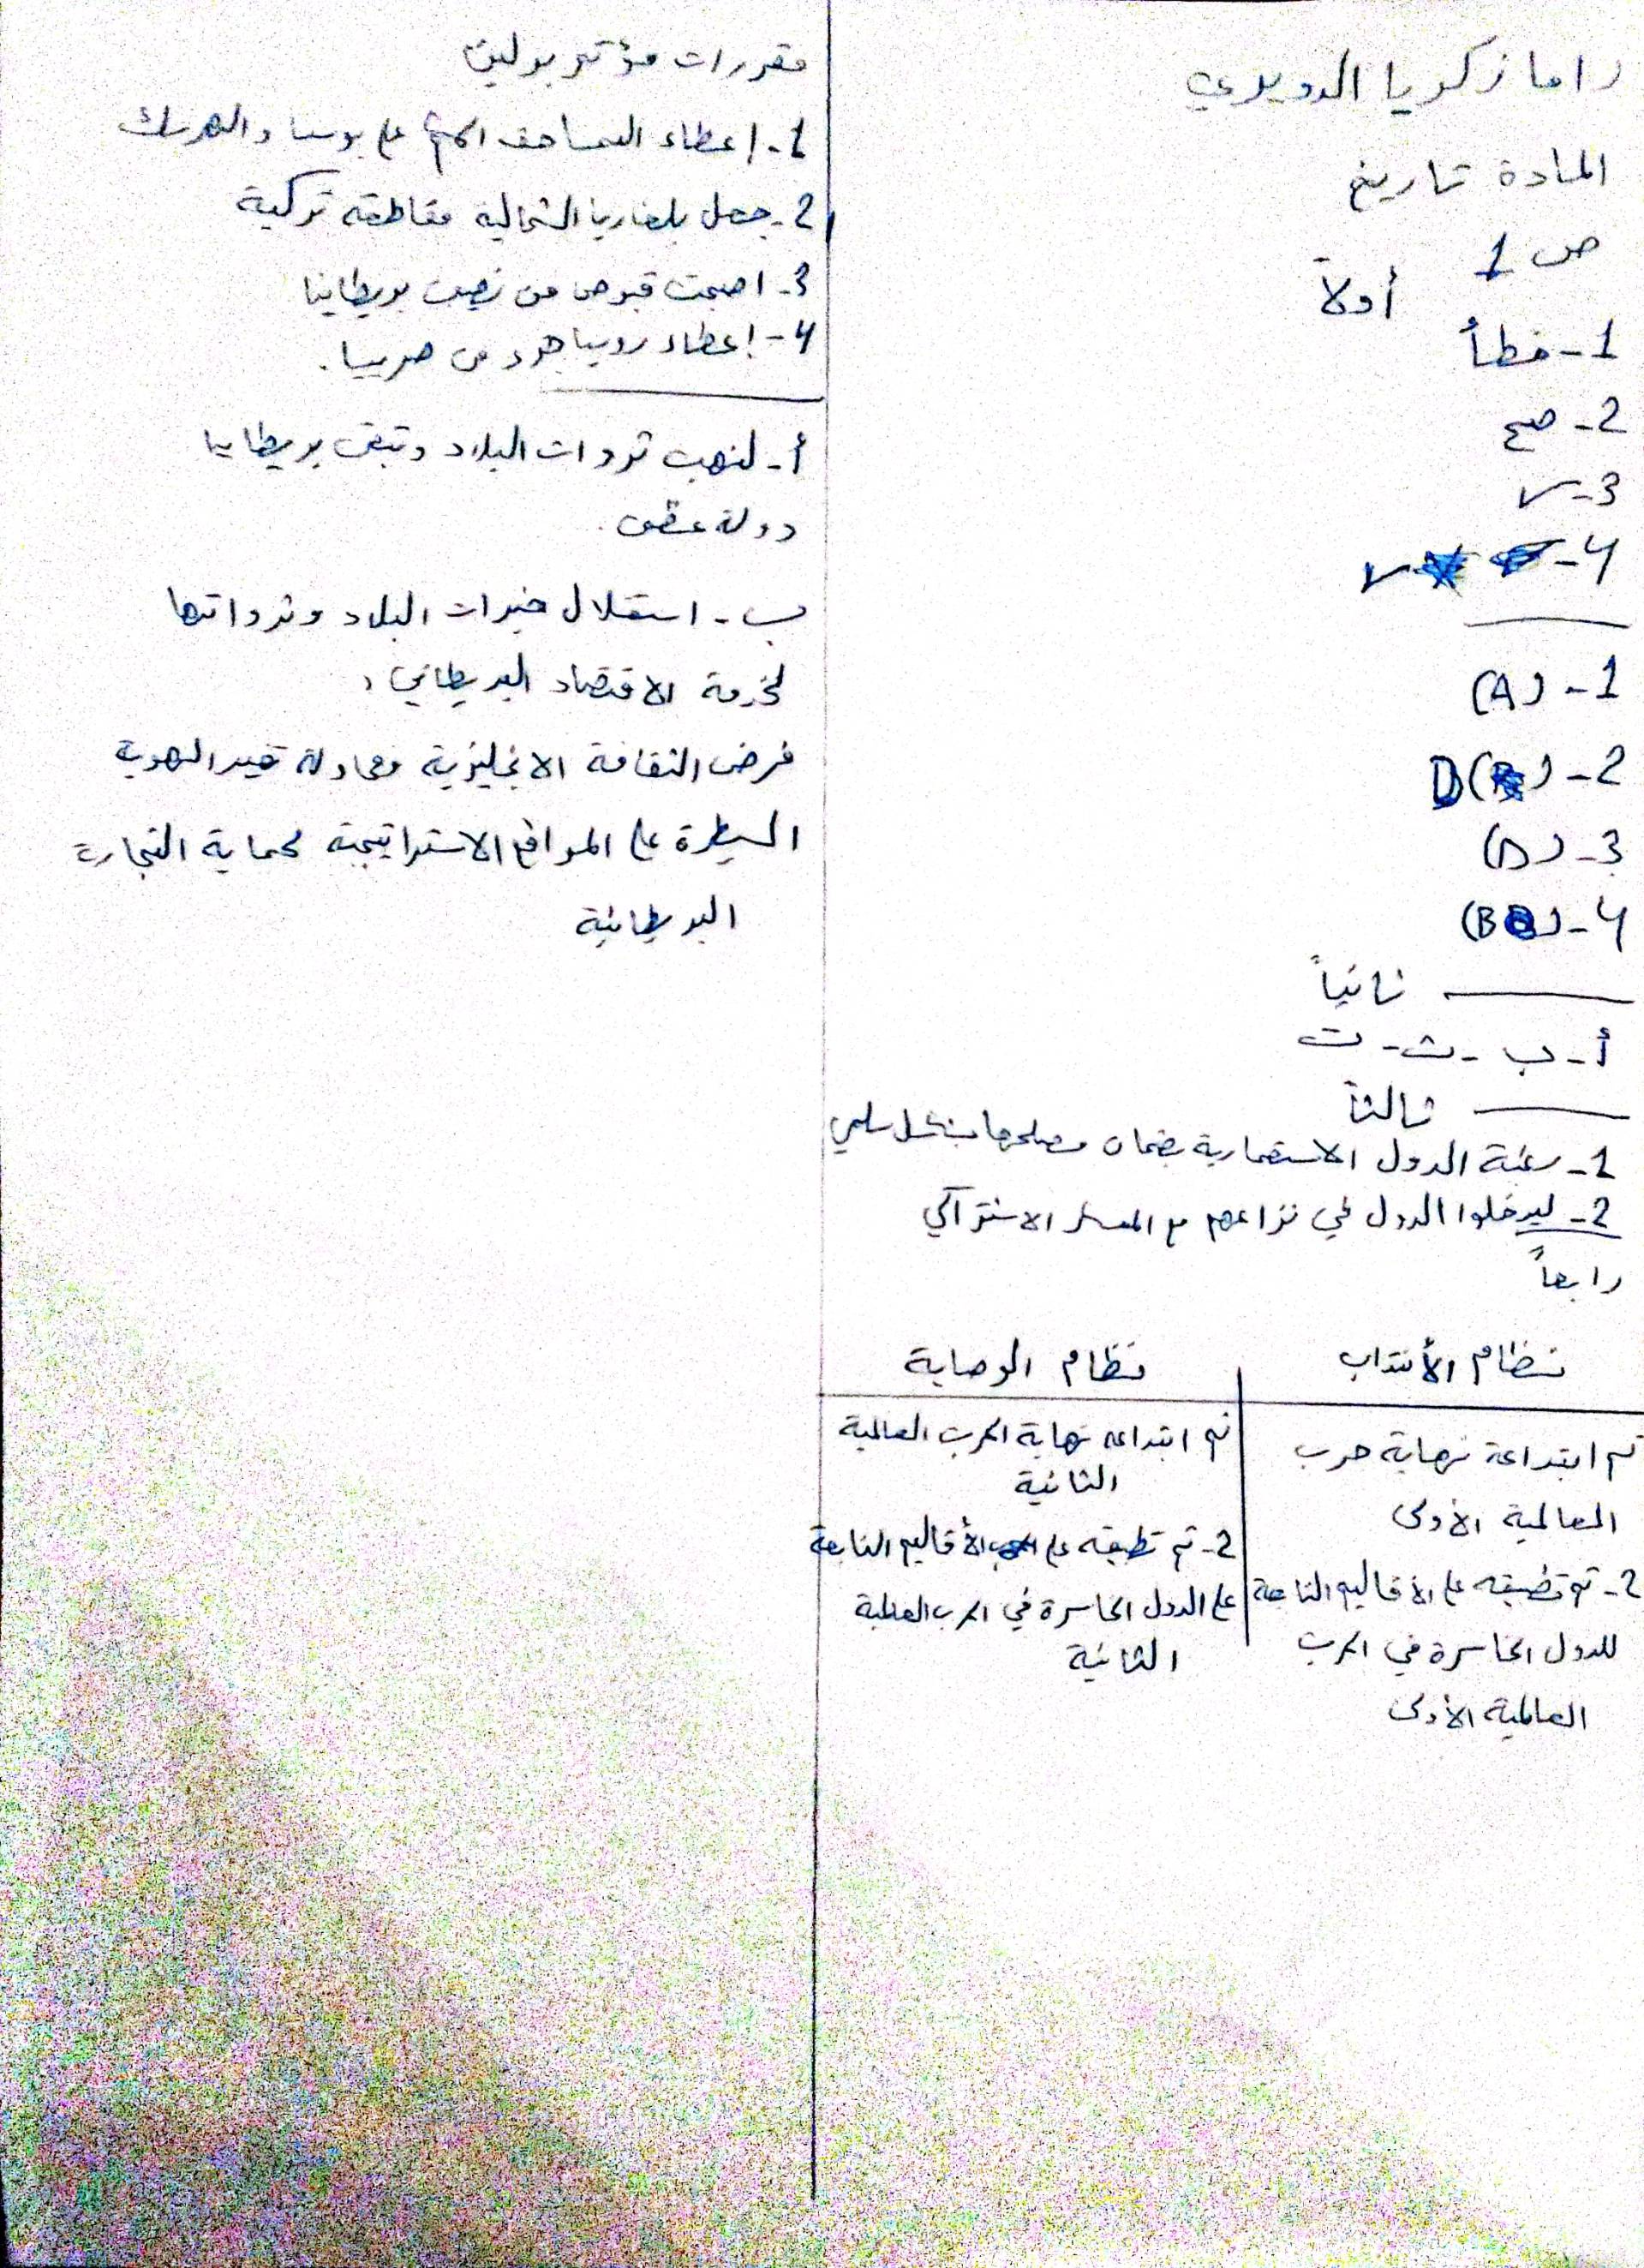 راما زكريا الدويدي
المادة تاريخ
ص 1
أولاً
1- خطأ
2- صح
3- ✓
4- ✓
1- (A)
2- ( ) D
3- (D)
4- (B)
ثانياً
أ - ب - ث - ت
ثالثاً
1- رغبة الدول الاستعمارية بضمان مصلحها بشكل سلمي
2- ليدخلوا الدول في نزاعهم مع المعسكر الاشتراكي
رابعاً
نظام الأنتداب
تم ابتداعة نهاية حرب
العالمية الأولى
2- تم تطبيقه على الأقاليم التابعة
للدول الخاسرة في الحرب
العالمية الأولى
نظام الوصاية
تم ابتداعه نهاية الحرب العالمية
الثانية
2- تم تطبيقه على الأقاليم التابعة
على الدول الخاسرة في الحرب العالمية
الثانية
مقررات مؤتمر برلين
1- إعطاء النمسا حق الحكم على بوسنا والهرسك
2- جعل بلغاريا الشمالية مقاطعة تركية
3- اصبحت قبرص من نصيب بريطانيا
4- إعطاء روسيا جزء من صربيا.
أ- لنهب ثروات البلاد وتبقى بريطانيا
دولة عظمى.
ب- استغلال خيرات البلاد وثرواتها
لخدمة الاقتصاد البريطاني،
فرض الثقافة الانجليزية ومحاولة تغيير الهوية
السيطرة على المواقع الاستراتيجية لحماية التجارة
البريطانية